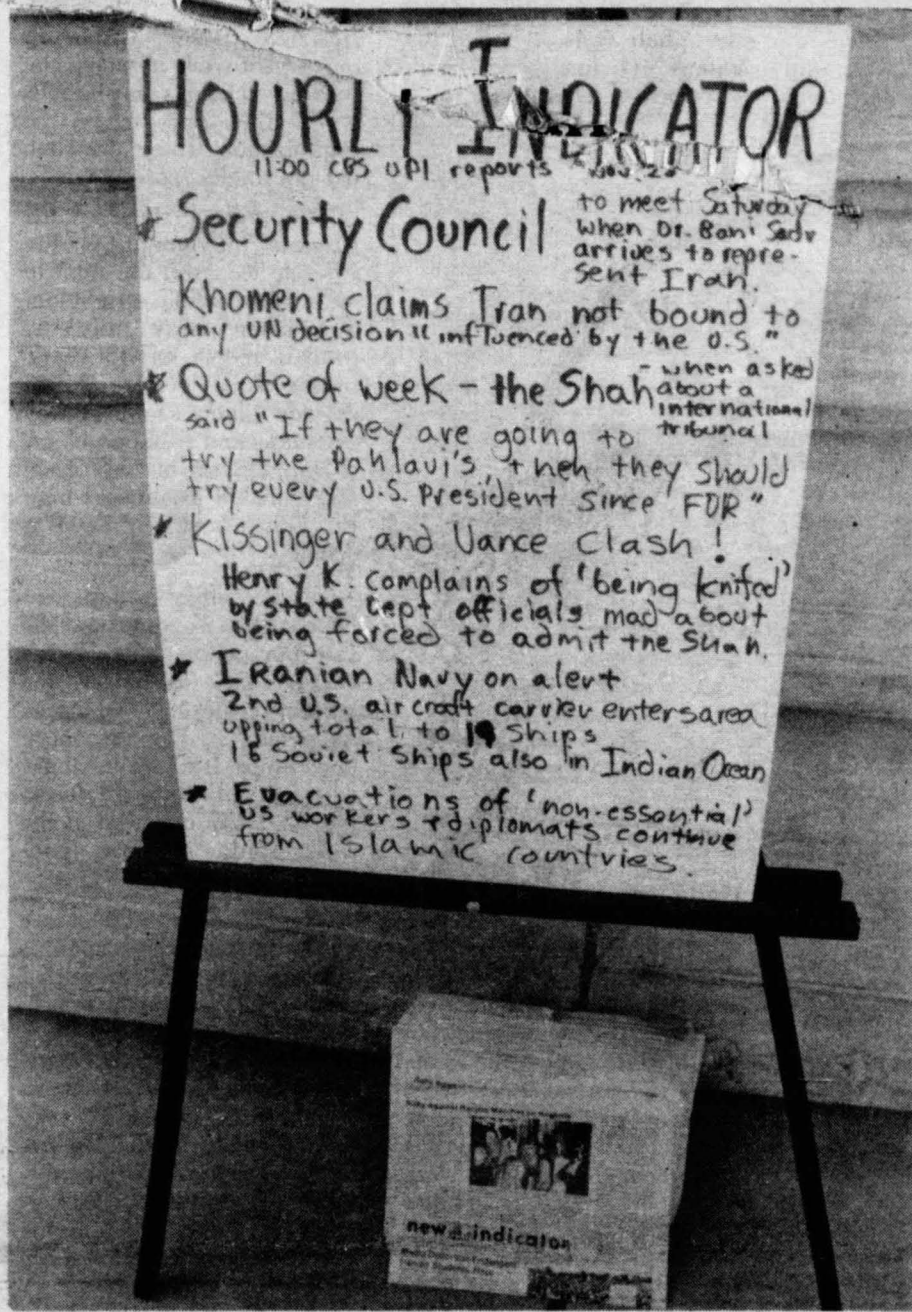 HOURLY INDICATOR
11:00 CBS UPI reports Nov. 28
Security Council
to meet Saturday
when Dr. Bani Sadr
arrives to repre-
sent Iran.
Khomeni claims Iran not bound to
any UN decision "influenced by the U.S."
Quote of week - the Shah
- when asked
about a
international
tribunal
said "If they are going to
try the Pahlavi's, then they should
try every U.S. President since FDR"
Kissinger and Vance Clash!
Henry K. complains of 'being knifed'
by state Dept officials mad about
being forced to admit the Shah.
Iranian Navy on alert
2nd U.S. aircraft carrier enters area
upping total to 19 Ships
18 Soviet Ships also in Indian Ocean
Evacuations of 'non-essential'
US workers + diplomats continue
from Islamic countries.
new indicator